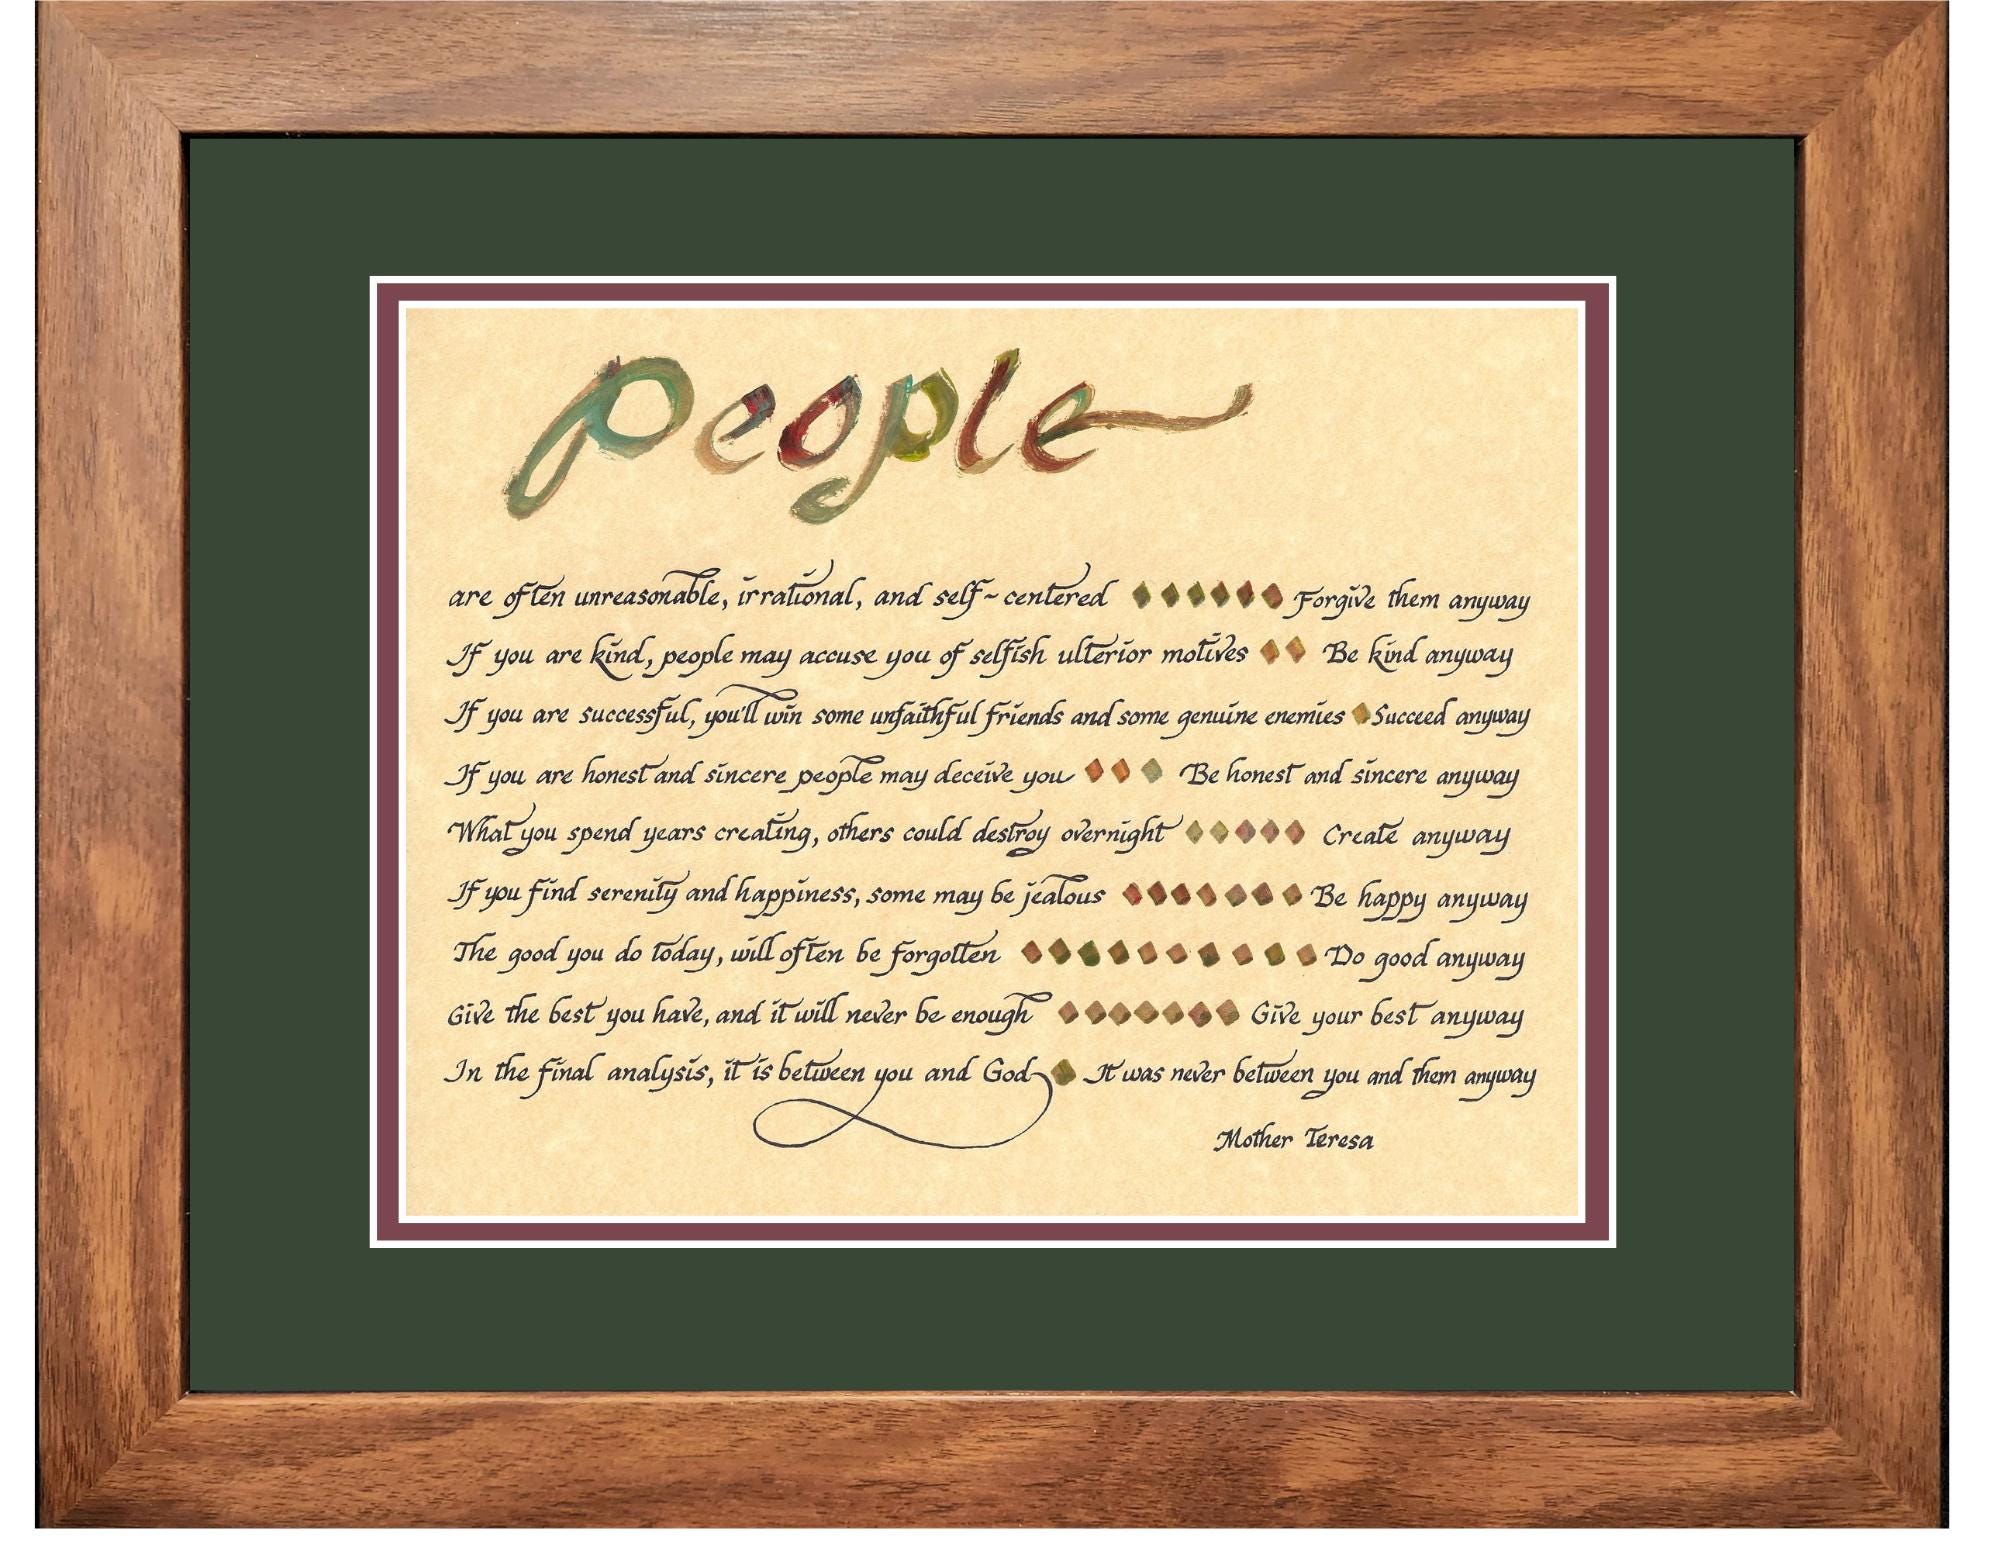 people
are often unreasonable, irrational, and self~centered Forgive them anyway
If you are kind, people may accuse you of selfish ulterior motives Be kind anyway
If you are successful, you'll win some unfaithful friends and some genuine enemies Succeed anyway
If you are honest and sincere people may deceive you Be honest and sincere anyway
What you spend years creating, others could destroy overnight Create anyway
If you find serenity and happiness, some may be jealous Be happy anyway
The good you do today, will often be forgotten Do good anyway
Give the best you have, and it will never be enough Give your best anyway
In the final analysis, it is between you and God It was never between you and them anyway
Mother Teresa